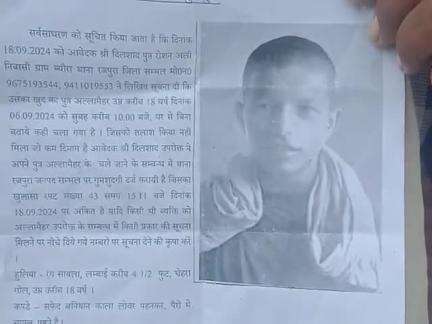 सर्वसाधारण को सूचित किया जाता है कि दिनांक
18.09.2024 को आवेदक श्री दिलशाद पुत्र रोशन अली
निवासी ग्राम ब्योरा थाना रजपुरा जिला सम्भल मो0न0
9675193544, 9411019553 ने लिखित सूचना दी कि
उसका खुद का पुत्र अल्लामेहर उम्र करीब 18 वर्ष दिनांक
06.09.2024 को सुबह करीब 10.00 बजे, घर से बिना
बताये कही चला गया है । जिसकी तलाश किया नही
मिला जो कम दिमाग है आवेदक श्री दिलशाद उपरोक्त ने
अपने पुत्र अल्लामेहर के चले जाने के सम्बन्ध मे थाना
रजपुरा जनपद सम्भल पर गुमशुदगी दर्ज करायी है जिसका
खुलासा रपट संख्या 43 समय 15.11 बजे दिनांक
18.09.2024 पर अंकित है यदि किसी भी व्यक्ति को
अल्लामेहर उपरोक्त के सम्बन्ध मे किसी प्रकार की सूचना
मिलने पर नीचे दिये गये नम्बरो पर सूचना देने की कृपा करें
।
हुलिया - रंग सांवला, लम्बाई करीब 4 1/2 फुट, चेहरा
गोल, उम्र करीब 18 वर्ष ।
कपडे – सफेद बनियान काला लोवर पहनकर, पैरो मे